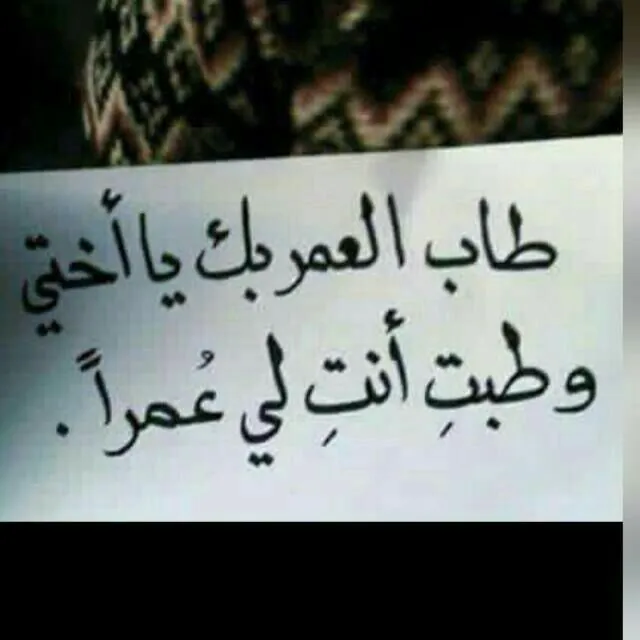 طاب العمر بك يا أختي
وطبتِ أنتِ لي عُمراً .